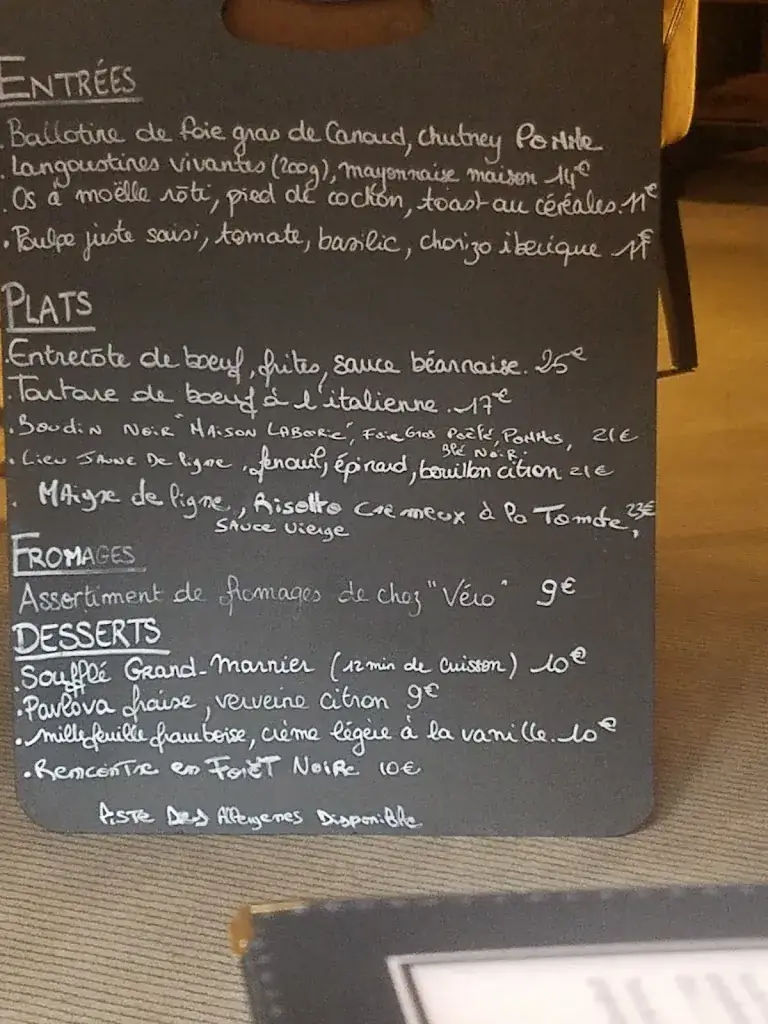 ENTRÉES
. Ballotine de foie gras de Canard, chutney Pomme
. Langoustines vivantes (200g), mayonnaise maison 14€
. Os à moëlle rôti, pied de cochon, toast au céréales. 11€
. Poulpe juste saisi, tomate, basilic, chorizo iberique
PLATS
. Entrecôte de boeuf, frites, sauce béarnaise. 25€
. Tartare de boeuf à l'italienne. 17€
. Boudin Noir "Maison Laborie", Foie Gras Poêlé, Pommes, 21€
. Lieu Jaune De ligne, fenouil, épinard, bouillon citron 21€
Blé Noir.
. Maigre de ligne, Risotto Crémeux à la Tomate, 23€
Sauce Vierge
FROMAGES
Assortiment de fromages de chez "Véro" 9€
DESSERTS
. Soufflé Grand-Marnier (12 min de Cuisson) 10€
. Pavlova fraise, verveine citron 9€
. millefeuille framboise, crème légère à la vanille. 10€
. Rencontre en Forêt Noire 10€
Liste Des Allergenes Disponible